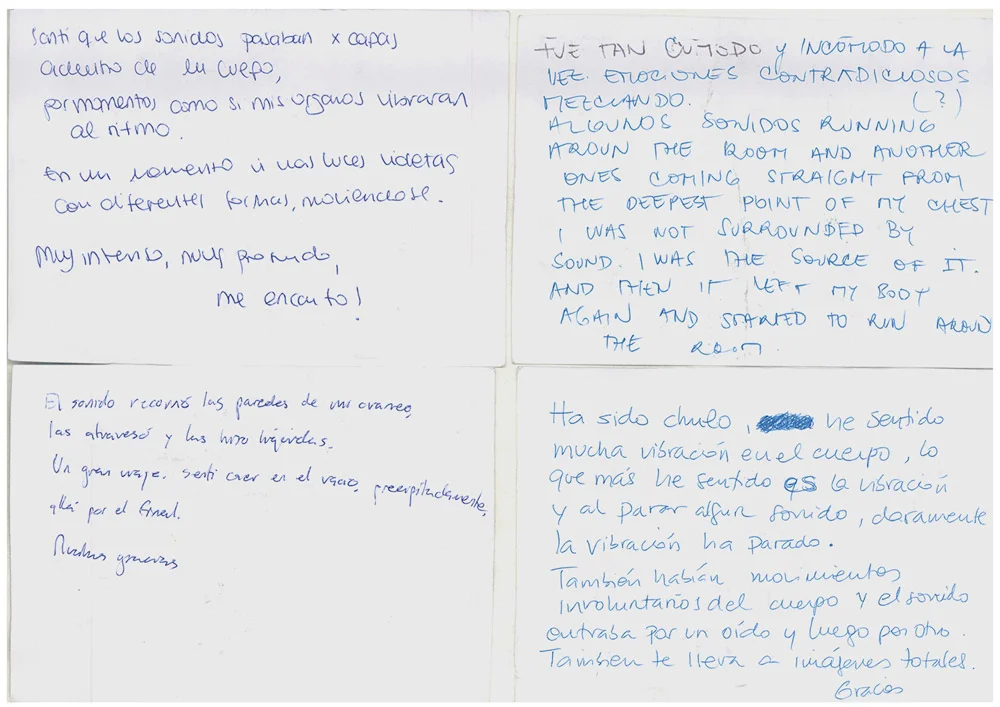 Sentí que los sonidos pasaban x capas
adentro de mi cuerpo,
por momentos como si mis organos vibraran
al ritmo.
En un momento vi unas luces violetas
con diferentes formas, moviendose.
Muy intenso, muy profundo,
me encanto!
FUE TAN CÓMODO y INCÓMODO A LA
VEZ. EMOCIONES CONTRADICIOSOS
MEZCLANDO. (?)
ALGUNOS SONIDOS RUNNING
AROUN THE ROOM AND ANOTHER
ONES COMING STRAIGHT FROM
THE DEEPEST POINT OF MY CHEST
I WAS NOT SURROUNDED BY
SOUND. I WAS THE SOURCE OF IT.
AND THEN IT LEFT MY BODY
AGAIN AND STARTED TO RUN AROUN
THE ROOM.
El sonido recorrió las paredes de mi craneo,
las atravesó y las hizo líquidas.
Un gran viaje. sentí caer en el vacio, precipitadamente,
allá por el final.
Muchas gracias
Ha sido chulo, he sentido
mucha vibración en el cuerpo, lo
que más he sentido es la vibración
y al parar algun sonido, claramente
la vibración ha parado.
También habían movimientos
involuntarios del cuerpo y el sonido
entraba por un oído y luego por otro.
Tambien te lleva a imágenes totales.
Gracias